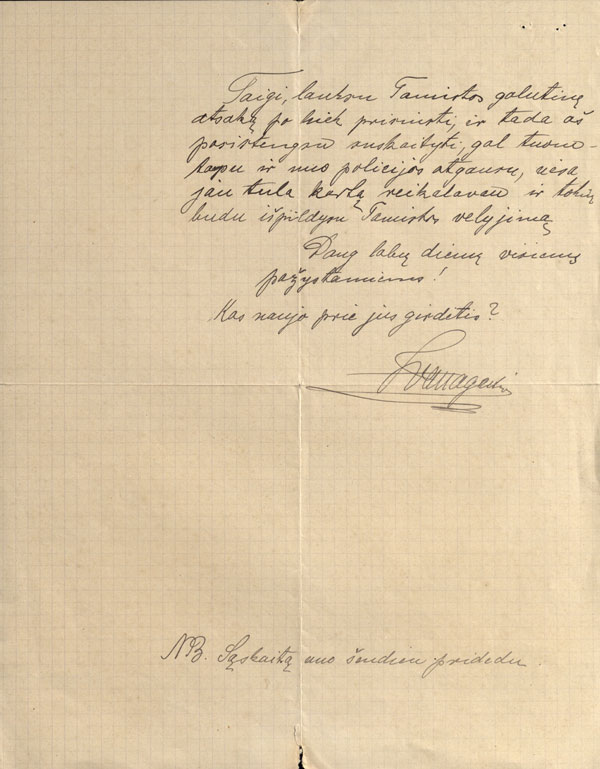 Taigi, lauksu Tamistos galutiną
atsaką po kiek prisiųsti, ir tada aš
pasistengsu suskaityti, gal tuom-
tarpu ir nuo policijos atgausu, nesa
jau tula kartą reikalavau ir tokiu
budu išpildysu Tamistos velyjimą
Daug labų dienų visiems
pažystamiems!
Kas naujo prie jus girdėtis?
NB. Sąskaitą nuo šendien pridedu.